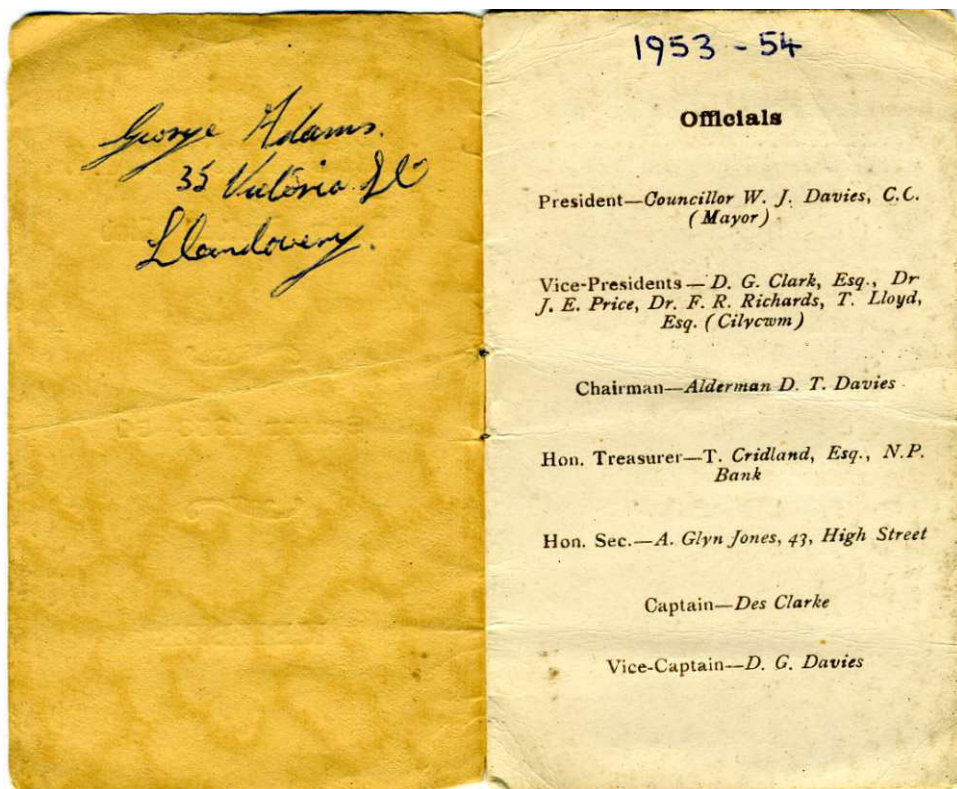 George Adams.
35 Victoria St
Llandovery.
1953 - 54
Officials
President—Councillor W. J. Davies, C.C.
(Mayor)
Vice-Presidents — D. G. Clark, Esq., Dr
J. E. Price, Dr. F. R. Richards, T. Lloyd,
Esq. (Cilycwm)
Chairman—Alderman D. T. Davies
Hon. Treasurer—T. Cridland, Esq., N.P.
Bank
Hon. Sec.—A. Glyn Jones, 43, High Street
Captain—Des Clarke
Vice-Captain—D. G. Davies